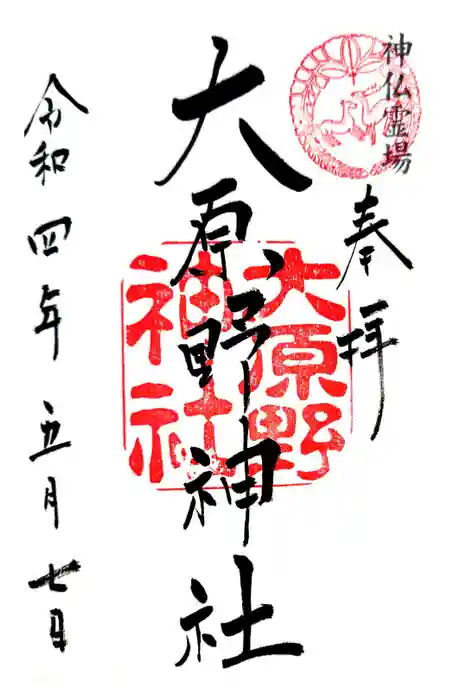 神仏霊場
奉拝
大原野神社
大原野
神社
令和四年五月七日